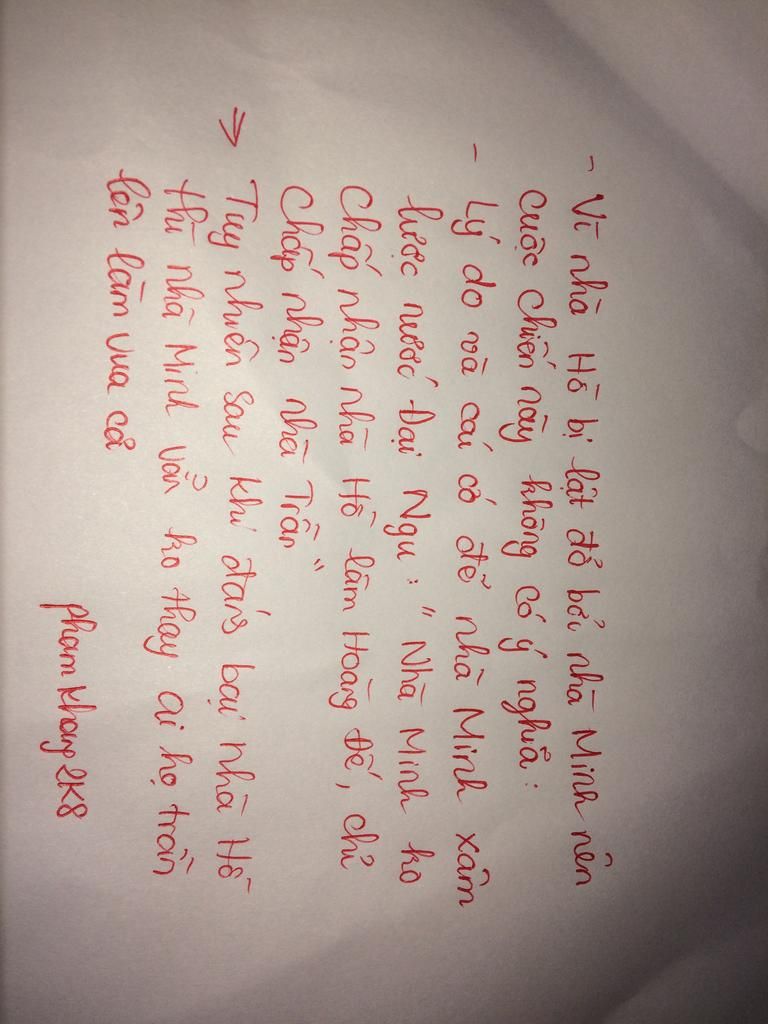 - Vì nhà Hồ bị lật đổ bởi nhà Minh nên
cuộc chiến này không có ý nghĩa:
- Lý do và cái cớ để nhà Minh xâm
lược nước Đại Ngu: "Nhà Minh ko
chấp nhận nhà Hồ làm Hoàng Đế, chỉ
chấp nhận nhà Trần"
→ Tuy nhiên sau khi đánh bại nhà Hồ
thì nhà Minh vẫn ko thay ai họ trần
lên làm vua cả
phạm khang 2K8